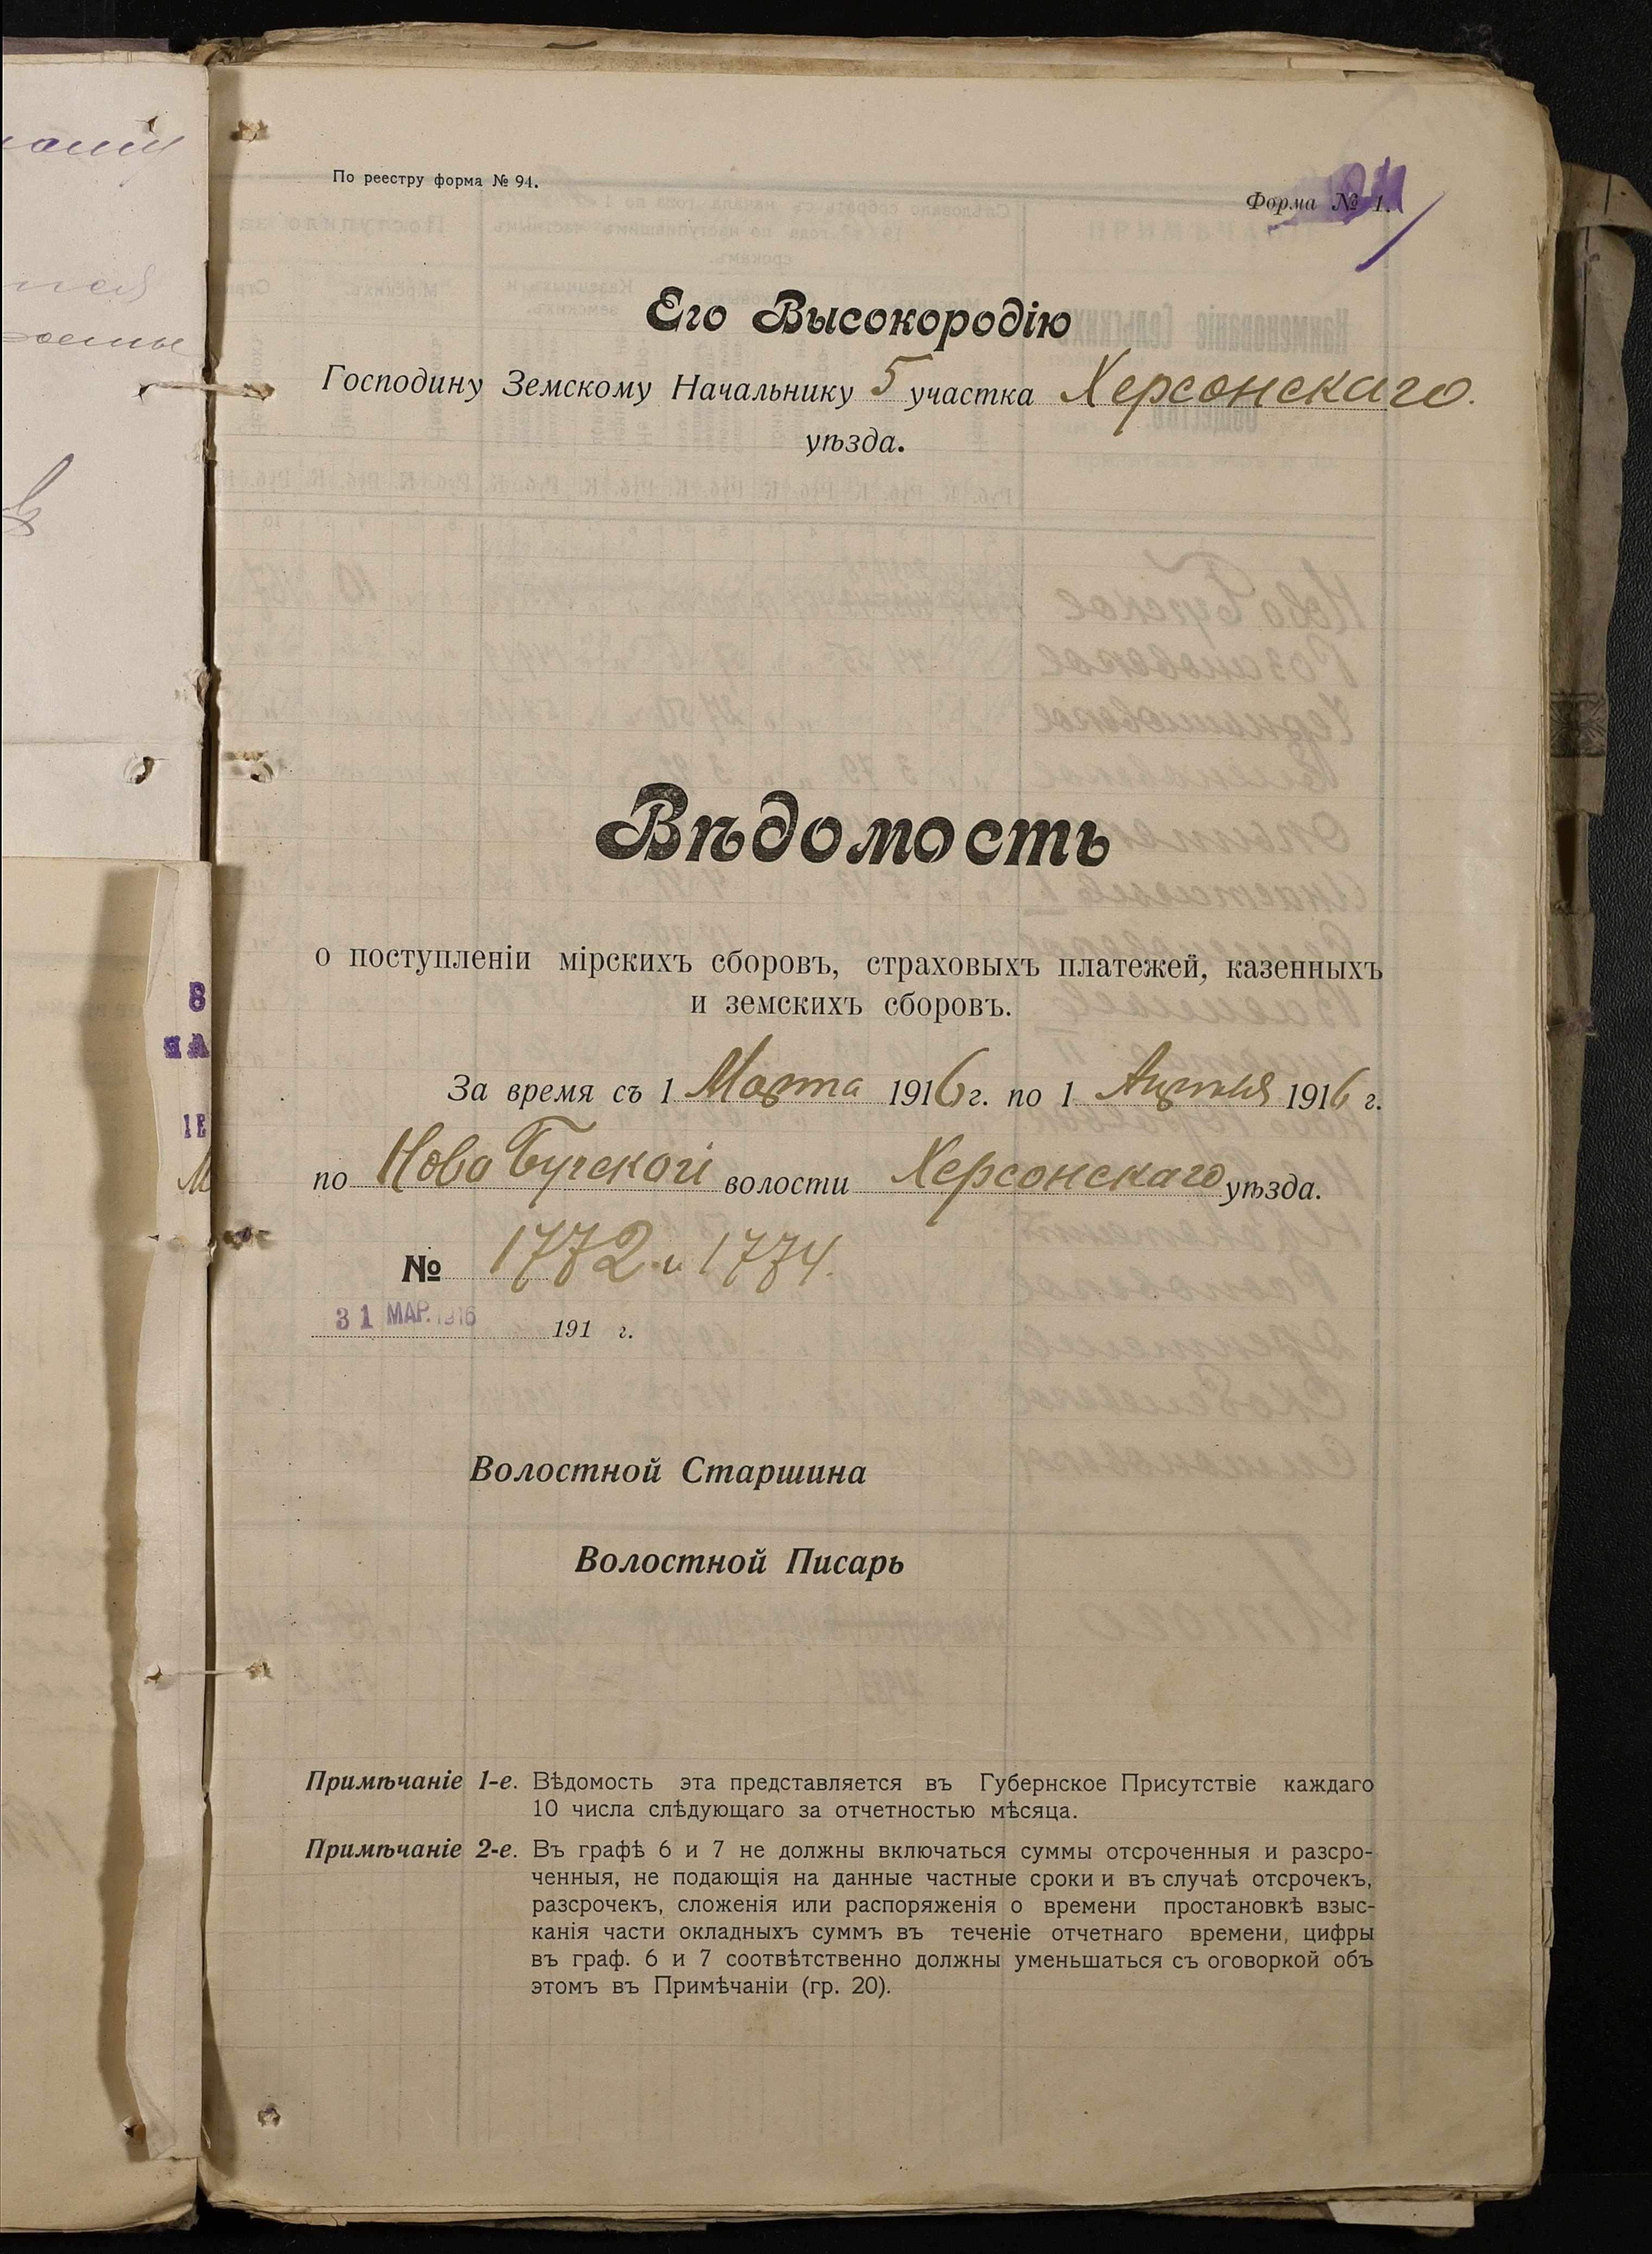 По реестру форма № 94.
Форма № 1.
Его Высокородію
Господину Земскому Начальнику 5 участка Херсонскаго
уѣзда.
Вѣдомость
о поступленіи мірскихъ сборовъ, страховыхъ платежей, казенныхъ
и земскихъ сборовъ.
За время съ 1 Марта 1916 г. по 1 Апрѣля 1916 г.
по Ново Бугской волости Херсонскаго уѣзда.
№ 1772 и 1774.
31 МАР. 1916 191 г.
Волостной Старшина
Волостной Писарь
Примѣчаніе 1-е. Вѣдомость эта представляется въ Губернское Присутствіе каждаго
10 числа слѣдующаго за отчетностью мѣсяца.
Примѣчаніе 2-е. Въ графѣ 6 и 7 не должны включаться суммы отсроченныя и разсро-
ченныя, не подающія на данные частные сроки и въ случаѣ отсрочекъ,
разсрочекъ, сложенія или распоряженія о времени простановкѣ взыс-
канія части окладныхъ суммъ въ теченіе отчетнаго времени, цифры
въ граф. 6 и 7 соотвѣтственно должны уменьшаться съ оговоркой объ
этомъ въ Примѣчаніи (гр. 20).